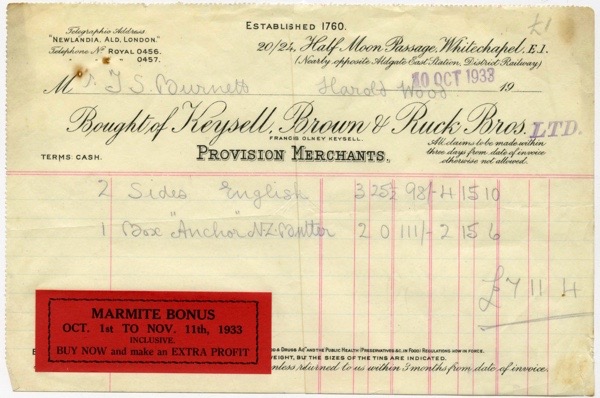 £1
Telegraphic Address
"NEWLANDIA, ALD, LONDON."
Telephone No. ROYAL 0456.
" " " 0457.
ESTABLISHED 1760.
20/24, Half Moon Passage, Whitechapel, E.1.
(Nearly opposite Aldgate East Station, District Railway)
10 OCT 1933 19
Mr. T S. Burnett Harold Wood
Bought of Keysell, Brown & Ruck Bros. LTD.
FRANCIS OLNEY KEYSELL.
TERMS: CASH.
PROVISION MERCHANTS.
All claims to be made within
three days from date of invoice
otherwise not allowed.
2 Sides English 3 25½ 98/- 4 15 10
1 Box "Anchor" N.Z. Butter 2 0 111/- 2 15 6
£7 11 4
MARMITE BONUS
OCT. 1st TO NOV. 11th, 1933
INCLUSIVE.
BUY NOW and make an EXTRA PROFIT
& DRUGS ACT" AND THE PUBLIC HEALTH (PRESERVATIVES &C. IN FOOD) REGULATIONS NOW IN FORCE.
WEIGHT, BUT THE SIZES OF THE TINS ARE INDICATED.
unless returned to us within 3 months from date of invoice.